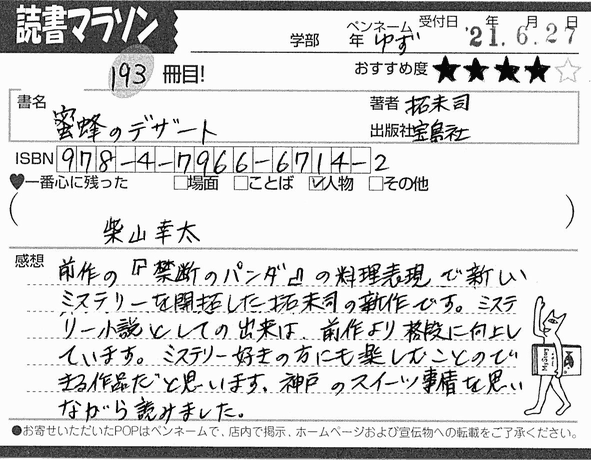 読書マラソン
学部 年 ペンネーム ゆず 受付日 '21.6.27 年 月 日
193 冊目! おすすめ度 ★★★★☆
書名 蜜蜂のデザート
著者 拓未司
出版社 宝島社
ISBN 978-4-7966-6714-2
♥一番心に残った □場面 □ことば ☑人物 □その他
( 柴山幸太 )
感想 前作の『禁断のパンダ』の料理表現で新しい
ミステリーを開拓した拓未司の新作です。ミステ
リー小説としての出来は、前作より格段に向上し
ています。ミステリー好きの方にも楽しむことので
きる作品だと思います。神戸のスイーツ事情を思い
ながら読みました。
●お寄せいただいたPOPはペンネームで、店内で掲示、ホームページおよび宣伝物への転載をご了承ください。